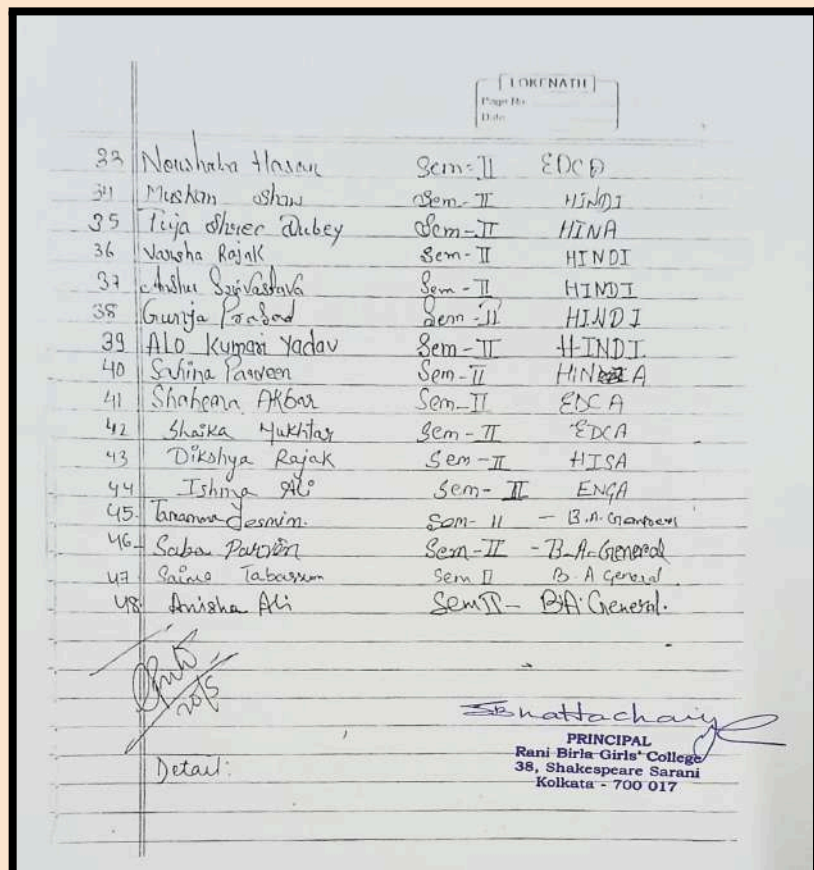 LOKENATH
Page No.
Date
33 Noushaba Hasan Sem-II EDCA
34 Muskan Shaw Sem-II HINDI
35 Puja Shree Dubey Sem-II HINA
36 Varsha Rajak Sem-II HINDI
37 Anshu Srivastava Sem-II HINDI
38 Gunja Prasad Sem-II HINDI
39 ALO Kumari Yadav Sem-II HINDI
40 Sahina Parveen Sem-II HINA
41 Shaheena Akbar Sem-II EDCA
42 Shaika Mukhtar Sem-II EDCA
43 Dikshya Rajak Sem-II HISA
44 Ishma Ali Sem-II ENGA
45. Tarannum Jesmin. Sem-II - B.A.
46. Saba Parvin Sem-II - B.A. General
47 Saima Tabassum Sem II B.A General
48. Anisha Ali Sem II - B.A. General.
20/5
SBhattacharya
PRINCIPAL
Rani Birla Girls' College
38, Shakespeare Sarani
Kolkata - 700 017
Detail: